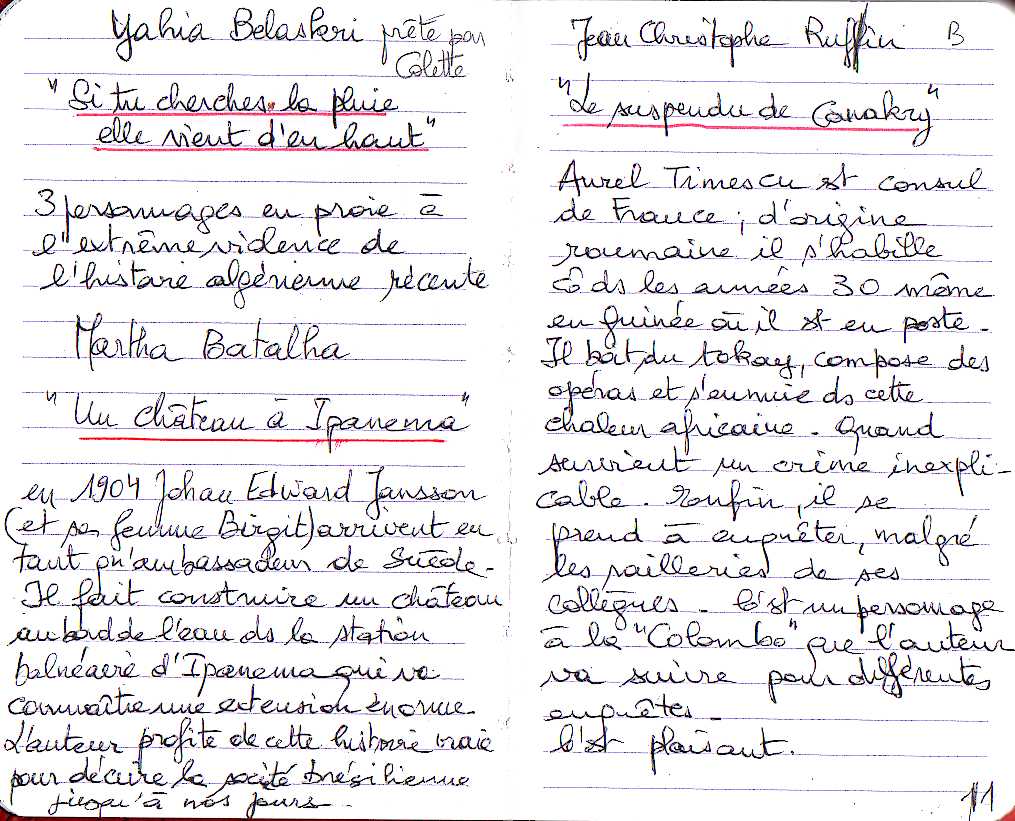 Yahia Belaskri prêté par
Colette
"Si tu cherches la pluie
elle vient d'en haut"
3 personnages en proie à
l'extrême violence de
l'histoire algérienne récente
Martha Batalha
"Un château à Ipanema"
en 1904 Johan Edward Jansson
(et sa femme Birgit) arrivent en
tant qu'ambassadeur de Suède.
Il fait construire un château
au bord de l'eau ds la station
balnéaire d'Ipanema qui va
connaître une extension énorme.
L'auteur profite de cette histoire vraie
pour décrire la société brésilienne
jusqu'à nos jours.
Jean Christophe Ruffin B
"Le suspendu de Conakry"
Aurel Timescu est consul
de France ; d'origine
roumaine il s'habille
cô ds les années 30 même
en Guinée où il est en poste.
Il boit du tokay, compose des
opéras et s'ennuie ds cette
chaleur africaine. Quand
survient un crime inexpli-
cable. Enfin, il se
prend à enquêter, malgré
les railleries de ses
collègues. C'est un personnage
à la "Colombo" que l'auteur
va suivre pour différentes
enquêtes.
C'est plaisant.
11